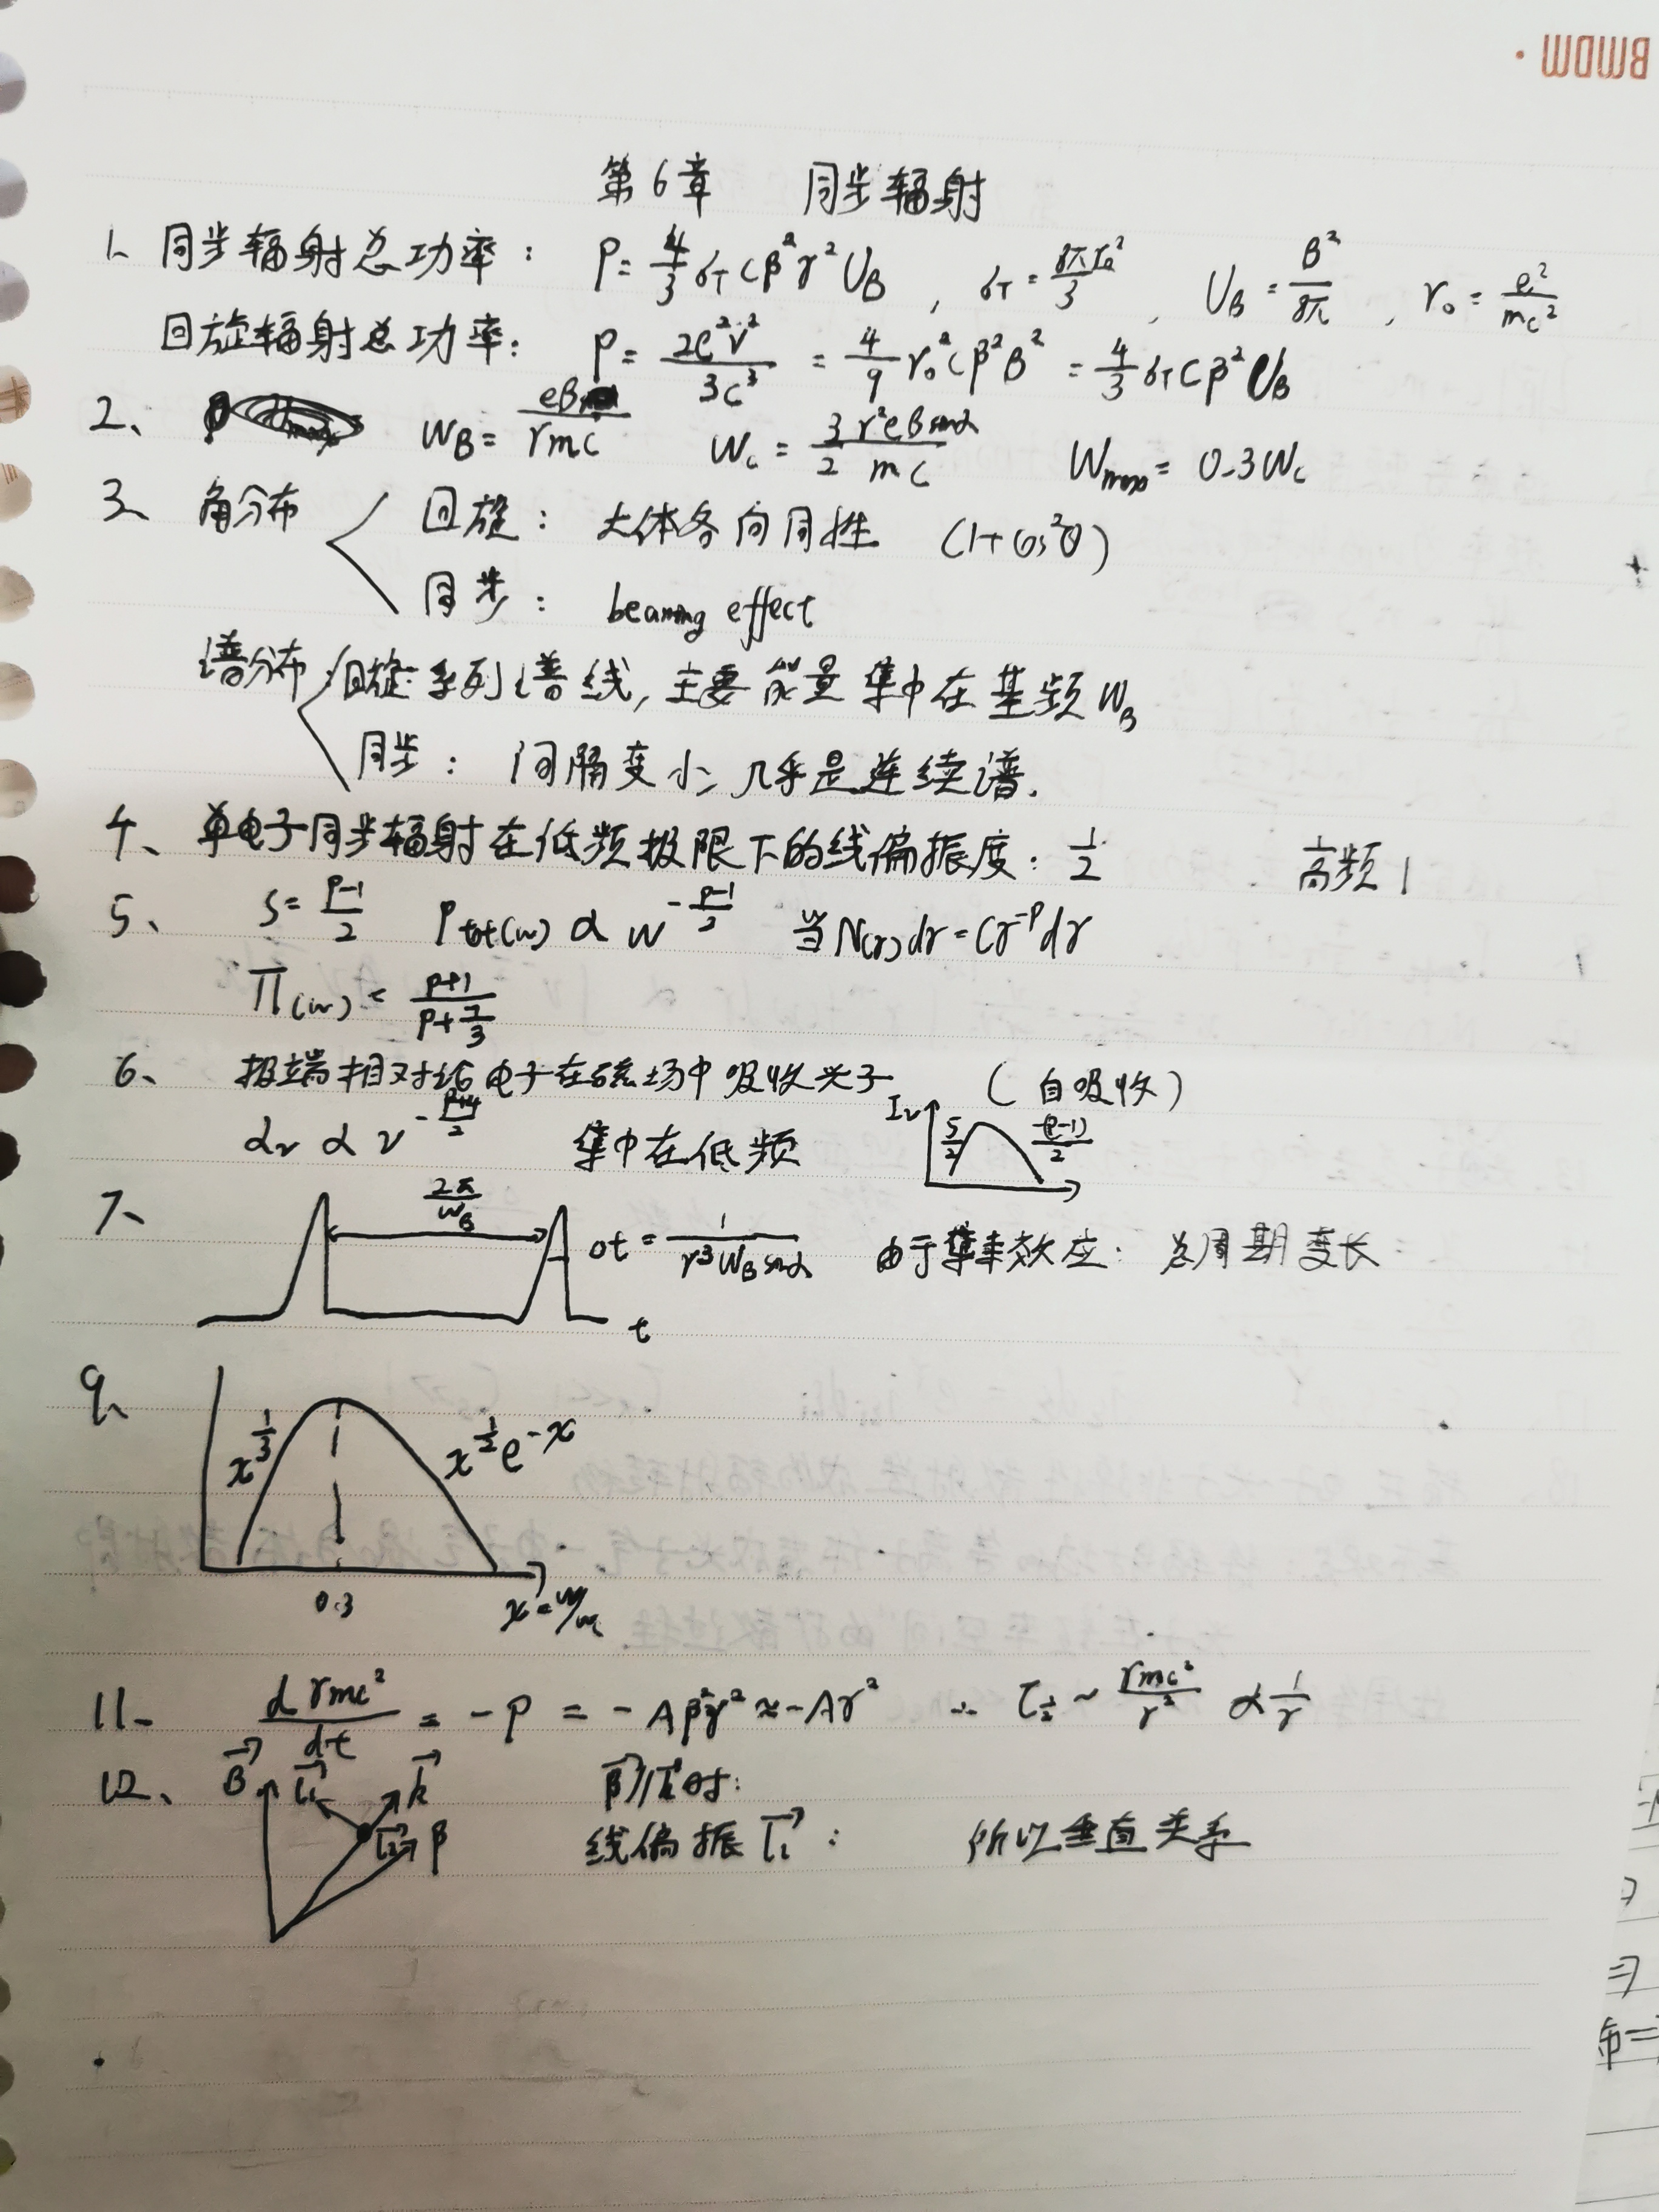 BMDM
第6章 同步辐射
1、同步辐射总功率: P=4/3 σT cβ²γ²UB , σT=8πr₀²/3 , UB=B²/8π , r₀=e²/mc²
回旋辐射总功率: P=2e²v̇²/3c³=4/9 r₀²cβ²B²=4/3 σTcβ²UB
2、 WB=eB/γmc Wc=3/2 γ²eBsinα/mc Wmax=0.3Wc
3、角分布 回旋: 大体各向同性 (1+cos²θ)
同步: beaming effect
谱分布 回旋:系列谱线,主要能量集中在基频WB
同步: 间隔变小,几乎是连续谱.
4、单电子同步辐射在低频极限下的线偏振度: 1/2 高频1
5、 s=(p-1)/2 Ptot(w)∝w^(-(p-1)/2) 当N(γ)dγ=Cγ^-p dγ
Π(w)=(p+1)/(p+7/3)
6、极端相对论电子在磁场中吸收光子 (自吸收)
αν∝ν^(-(p+4)/2) 集中在低频 Iν 5/2 -(p-1)/2
7、 2π/WB Δt=1/γ³WBsinα 由于集束效应: 总周期变长
t
9、 x^(1/3) x^(1/2)e^-x
0.3 x=w/wc
11、 dγmc²/dt=-P=-Aβ²γ²≈-Aγ² ∴ τ1/2~γmc²/γ² ∝1/γ
12、 B l₁ k β∥k时:
l₂ β 线偏振l₁: 所以垂直关系